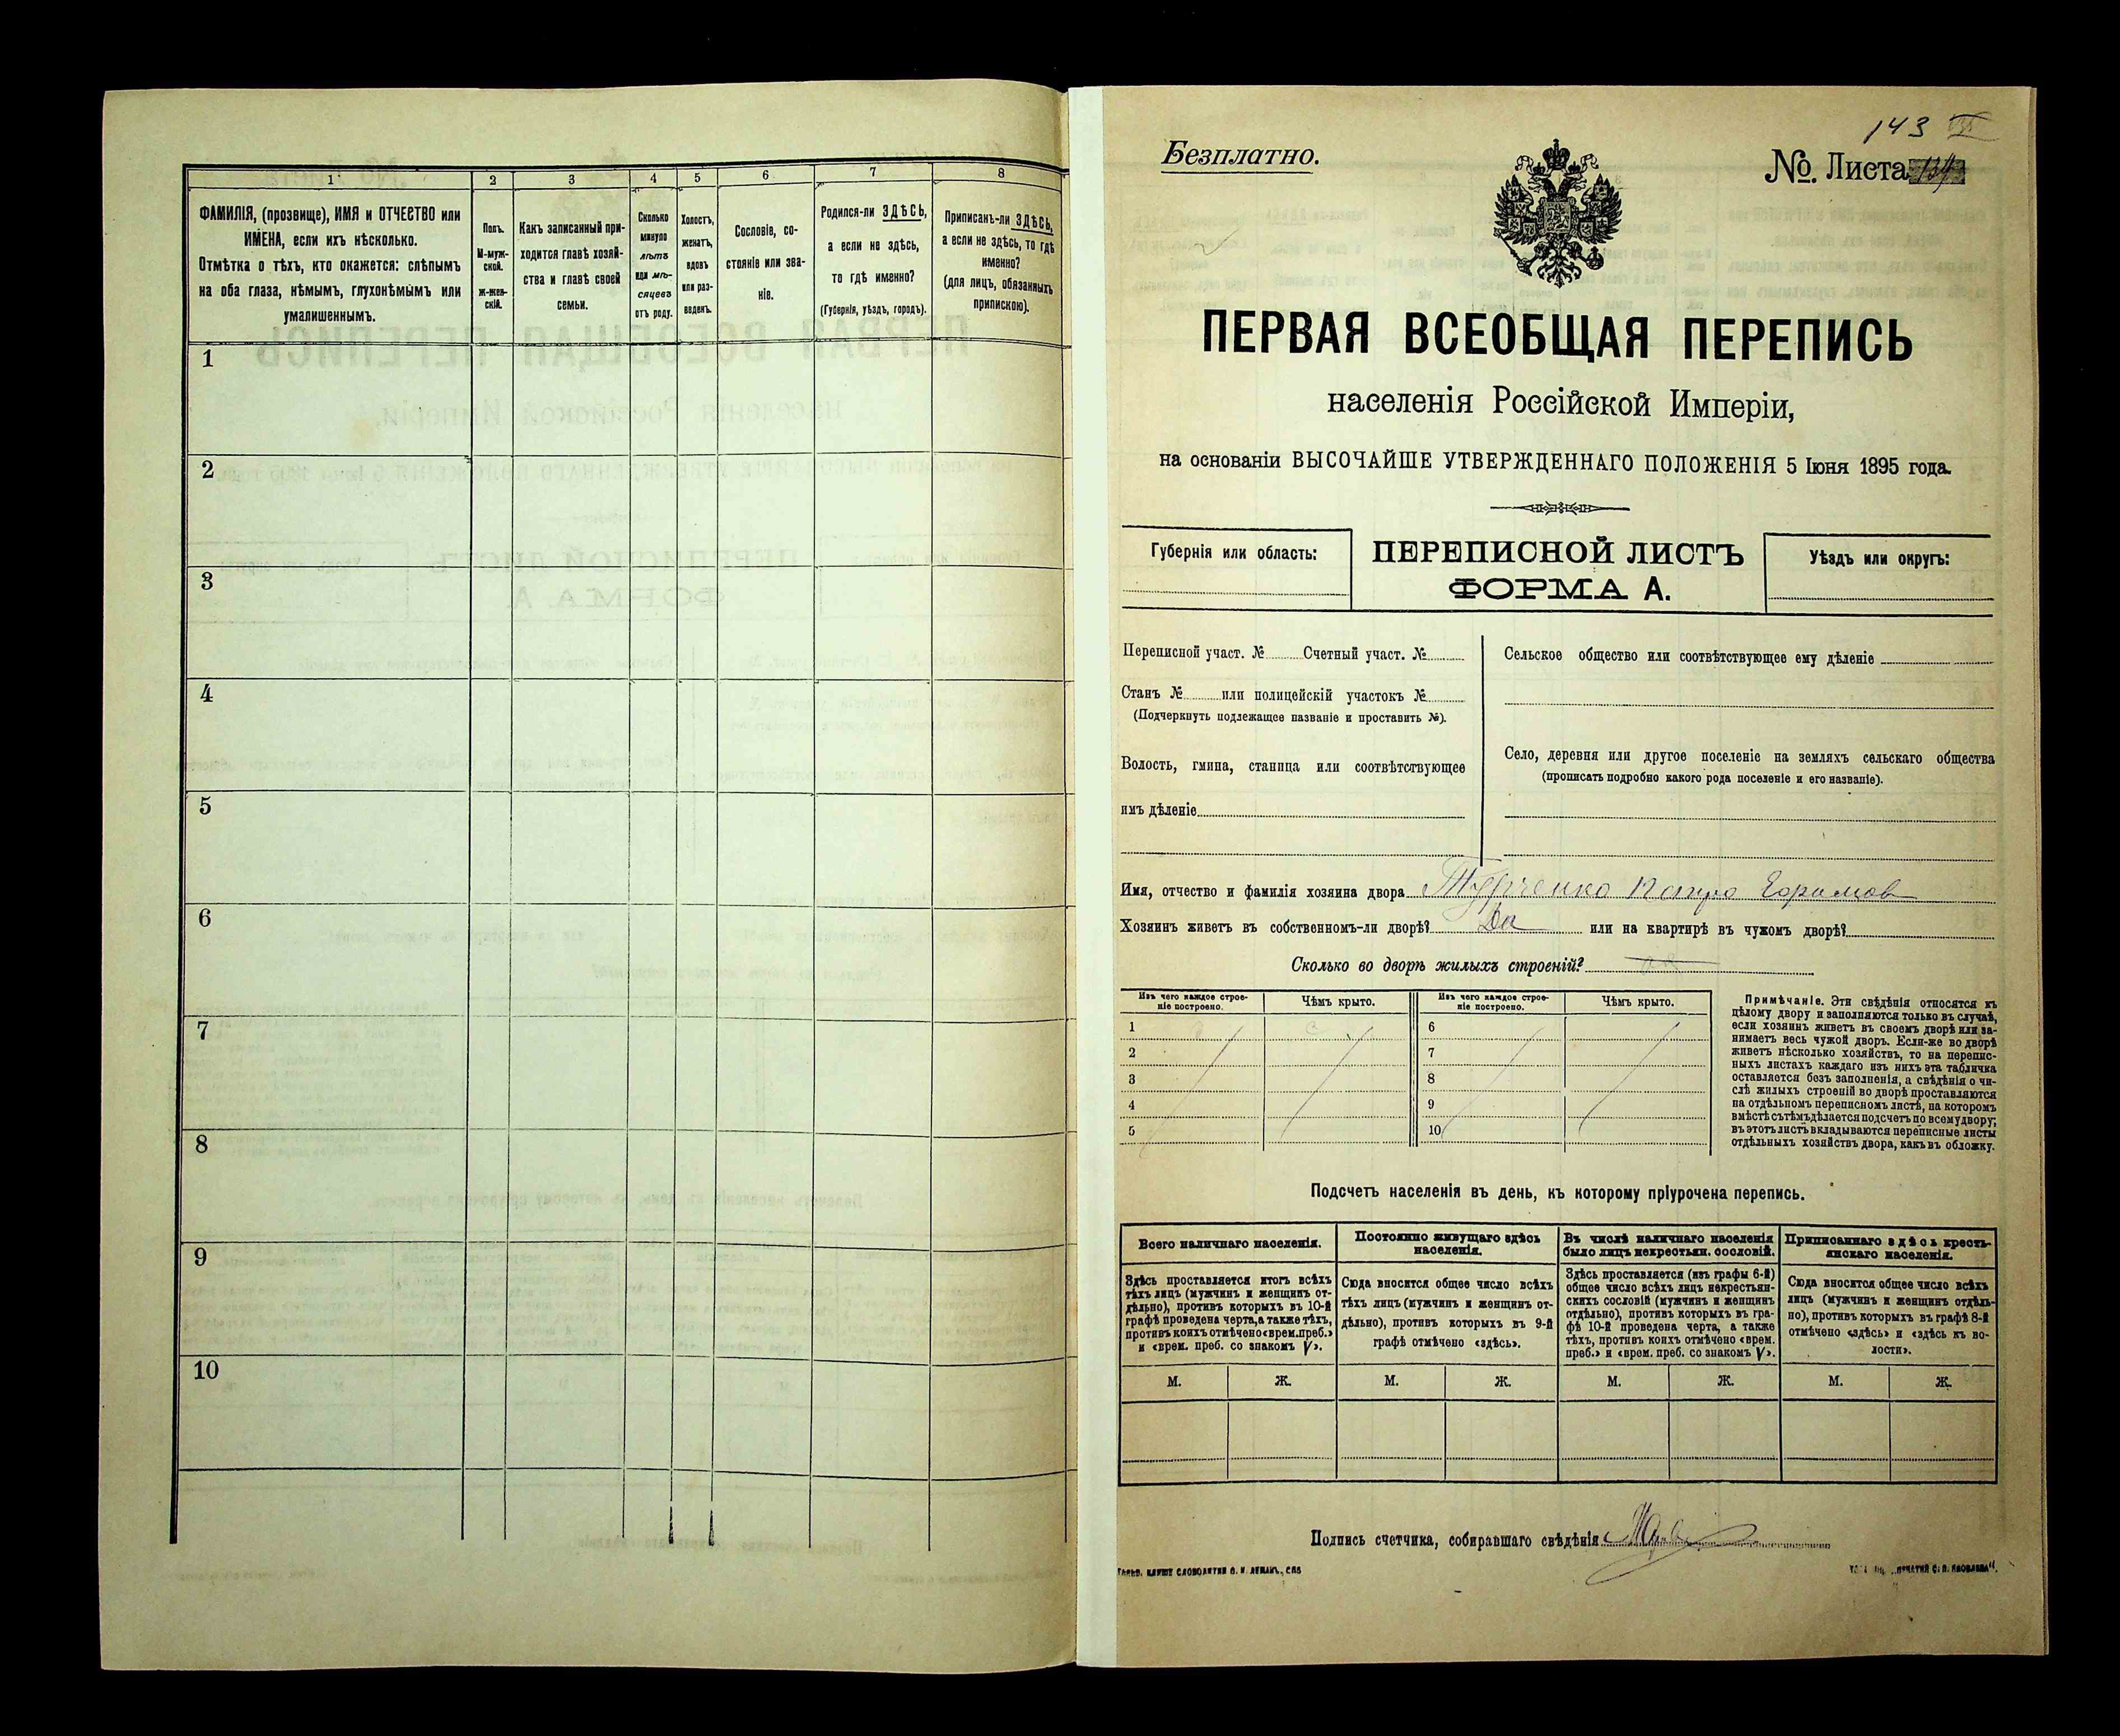 1
2
3
4
5
6
7
8
ФАМИЛІЯ, (прозвище), ИМЯ и ОТЧЕСТВО или
ИМЕНА, если ихъ нѣсколько.
Отмѣтка о тѣхъ, кто окажется: слѣпымъ
на оба глаза, нѣмымъ, глухонѣмымъ или
умалишеннымъ.
Полъ.
М-муж-
ской.
ж-жен-
скій.
Какъ записанный при-
ходится главѣ хозяй-
ства и главѣ своей
семьи.
Сколько
минуло
лѣтъ
или мѣ-
сяцевъ
отъ роду.
Холостъ,
женатъ,
вдовъ
или раз-
веденъ.
Сословіе, со-
стояніе или зва-
ніе.
Родился-ли ЗДѢСЬ,
а если не здѣсь,
то гдѣ именно?
(Губернія, уѣздъ, городъ).
Приписанъ-ли ЗДѢСЬ,
а если не здѣсь, то гдѣ
именно?
(для лицъ, обязанныхъ
припискою).
1
2
3
4
5
6
7
8
9
10
143
Безплатно.
№. Листа
ПЕРВАЯ ВСЕОБЩАЯ ПЕРЕПИСЬ
населенія Россійской Имперіи,
на основаніи ВЫСОЧАЙШЕ УТВЕРЖДЕННАГО ПОЛОЖЕНІЯ 5 Іюня 1895 года.
Губернія или область:
ПЕРЕПИСНОЙ ЛИСТЪ
ФОРМА А.
Уѣздъ или округъ:
Переписной участ. № Счетный участ. №
Станъ № или полицейскій участокъ №
(Подчеркнуть подлежащее названіе и проставить №).
Волость, гмина, станица или соотвѣтствующее
имъ дѣленіе
Сельское общество или соотвѣтствующее ему дѣленіе
Село, деревня или другое поселеніе на земляхъ сельскаго общества
(прописать подробно какого рода поселеніе и его названіе).
Имя, отчество и фамилія хозяина двора Турченко
Хозяинъ живетъ въ собственномъ-ли дворѣ? Да или на квартирѣ въ чужомъ дворѣ?
Сколько во дворѣ жилыхъ строеній?
Изъ чего каждое строе-
ніе построено.
Чѣмъ крыто.
Изъ чего каждое строе-
ніе построено.
Чѣмъ крыто.
1
2
3
4
5
6
7
8
9
10
Примѣчаніе. Эти свѣдѣнія относятся къ
цѣлому двору и заполняются только въ случаѣ,
если хозяинъ живетъ въ своемъ дворѣ или за-
нимаетъ весь чужой дворъ. Если-же во дворѣ
живетъ нѣсколько хозяйствъ, то на перепис-
ныхъ листахъ каждаго изъ нихъ эта табличка
оставляется безъ заполненія, а свѣдѣнія о чи-
слѣ жилыхъ строеній во дворѣ проставляются
на отдѣльномъ переписномъ листѣ, на которомъ
вмѣстѣ съ тѣмъ дѣлается подсчетъ по всему двору;
въ этотъ листъ вкладываются переписные листы
отдѣльныхъ хозяйствъ двора, какъ въ обложку.
Подсчетъ населенія въ день, къ которому пріурочена перепись.
Всего наличнаго населенія.
Здѣсь проставляется итогъ всѣхъ
тѣхъ лицъ (мужчинъ и женщинъ от-
дѣльно), противъ которыхъ въ 10-й
графѣ проведена черта, а также тѣхъ,
противъ коихъ отмѣчено «врем. преб.»
и «врем. преб. со знакомъ V».
Постоянно живущаго здѣсь
населенія.
Сюда вносится общее число всѣхъ
тѣхъ лицъ (мужчинъ и женщинъ от-
дѣльно), противъ которыхъ въ 9-й
графѣ отмѣчено «здѣсь».
Въ числѣ наличнаго населенія
было лицъ некрестьян. сословій.
Здѣсь проставляется (изъ графы 6-й)
общее число всѣхъ лицъ некрестьян-
скихъ сословій (мужчинъ и женщинъ
отдѣльно), противъ которыхъ въ гра-
фѣ 10-й проведена черта, а также
тѣхъ, противъ коихъ отмѣчено «врем.
преб.» и «врем. преб. со знакомъ V».
Приписаннаго здѣсь кресть-
янскаго населенія.
Сюда вносится общее число всѣхъ
лицъ (мужчинъ и женщинъ отдѣль-
но), противъ которыхъ въ графѣ 8-й
отмѣчено «здѣсь» и «здѣсь къ во-
лости».
М.
Ж.
М.
Ж.
М.
Ж.
М.
Ж.
Подпись счетчика, собиравшаго свѣдѣнія